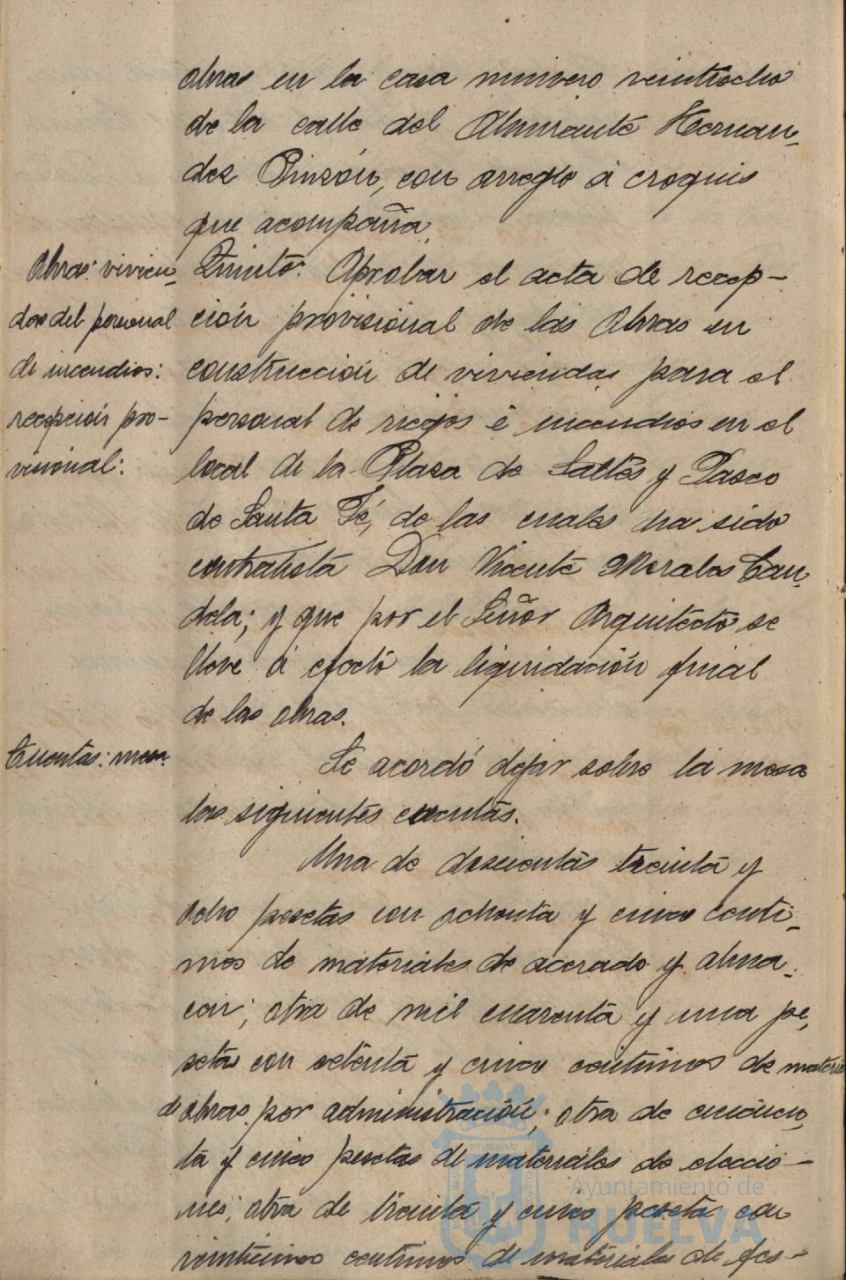 obras en la casa número veintiocho
de la calle del Almirante Hernan-
dez Pinzón, con arreglo á croquis
que acompaña.
Obras: vivien-
das del personal
de incendios:
recepción pro-
visional:
Quinto: Aprobar el acta de recep-
ción provisional de las obras en
construcción de viviendas para el
personal de riegos é incendios en el
local de la Plaza de Saltés y Paseo
de Santa Fé, de las cuales ha sido
contratista Don Vicente Morales Can-
dela; y que por el Señor Arquitecto se
lleve á efecto la liquidación final
de las obras.
Cuentas: mesa.
Se acordó dejar sobre la mesa
las siguientes cuentas.
Una de doscientas treinta y
ocho pesetas con ochenta y cinco centi-
mos de materiales de acerado y alma-
cen; otra de mil cuarenta y una pe-
setas con setenta y cinco centimos de material
de obras por administración; otra de cincuen-
ta y cinco pesetas de materiales de eleccio-
nes; otra de treinta y cinco pesetas con
veinticinco centimos de materiales de fes-
Ayuntamiento de
HUELVA